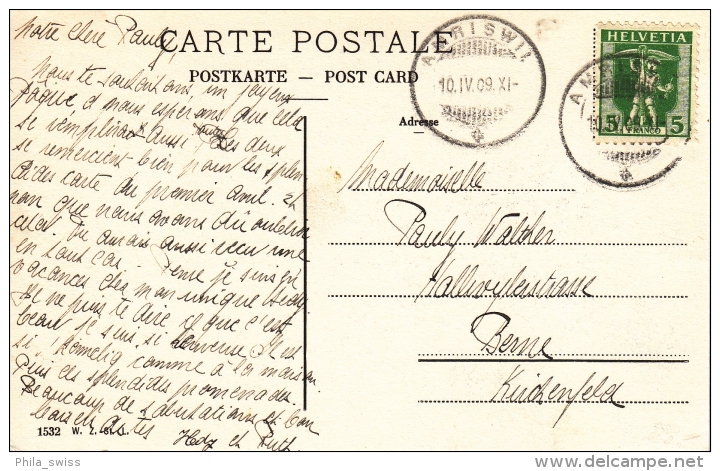 CARTE POSTALE
POSTKARTE — POST CARD
Adresse
AMRISWIL
10.IV.09.XI-
HELVETIA
5 FRANCO 5
Notre chère Pauly,
Nous te souhaitons un joyeux
Pâque & nous espérons que cela
se aussi. Les deux
se remercient bien pour les splen
dides carte du premier avril.
non que nous avons dû oublier
cela. Tu aurais aussi reçu une
en tous cas. Pense je suis en
vacances chez mon unique
Je ne puis te dire ce que c'est
beau je suis si heureuse. Il est
si heimelig comme à la maison.
Puis les splendides promenades.
Beaucoup de salutations et bon
baisers
Hedy et Ruth.
Mademoiselle
Pauly Walther
Hallwylerstrasse
Berne
Kirchenfeld
1532 W. Z.
Phila_swiss
delcampe.net